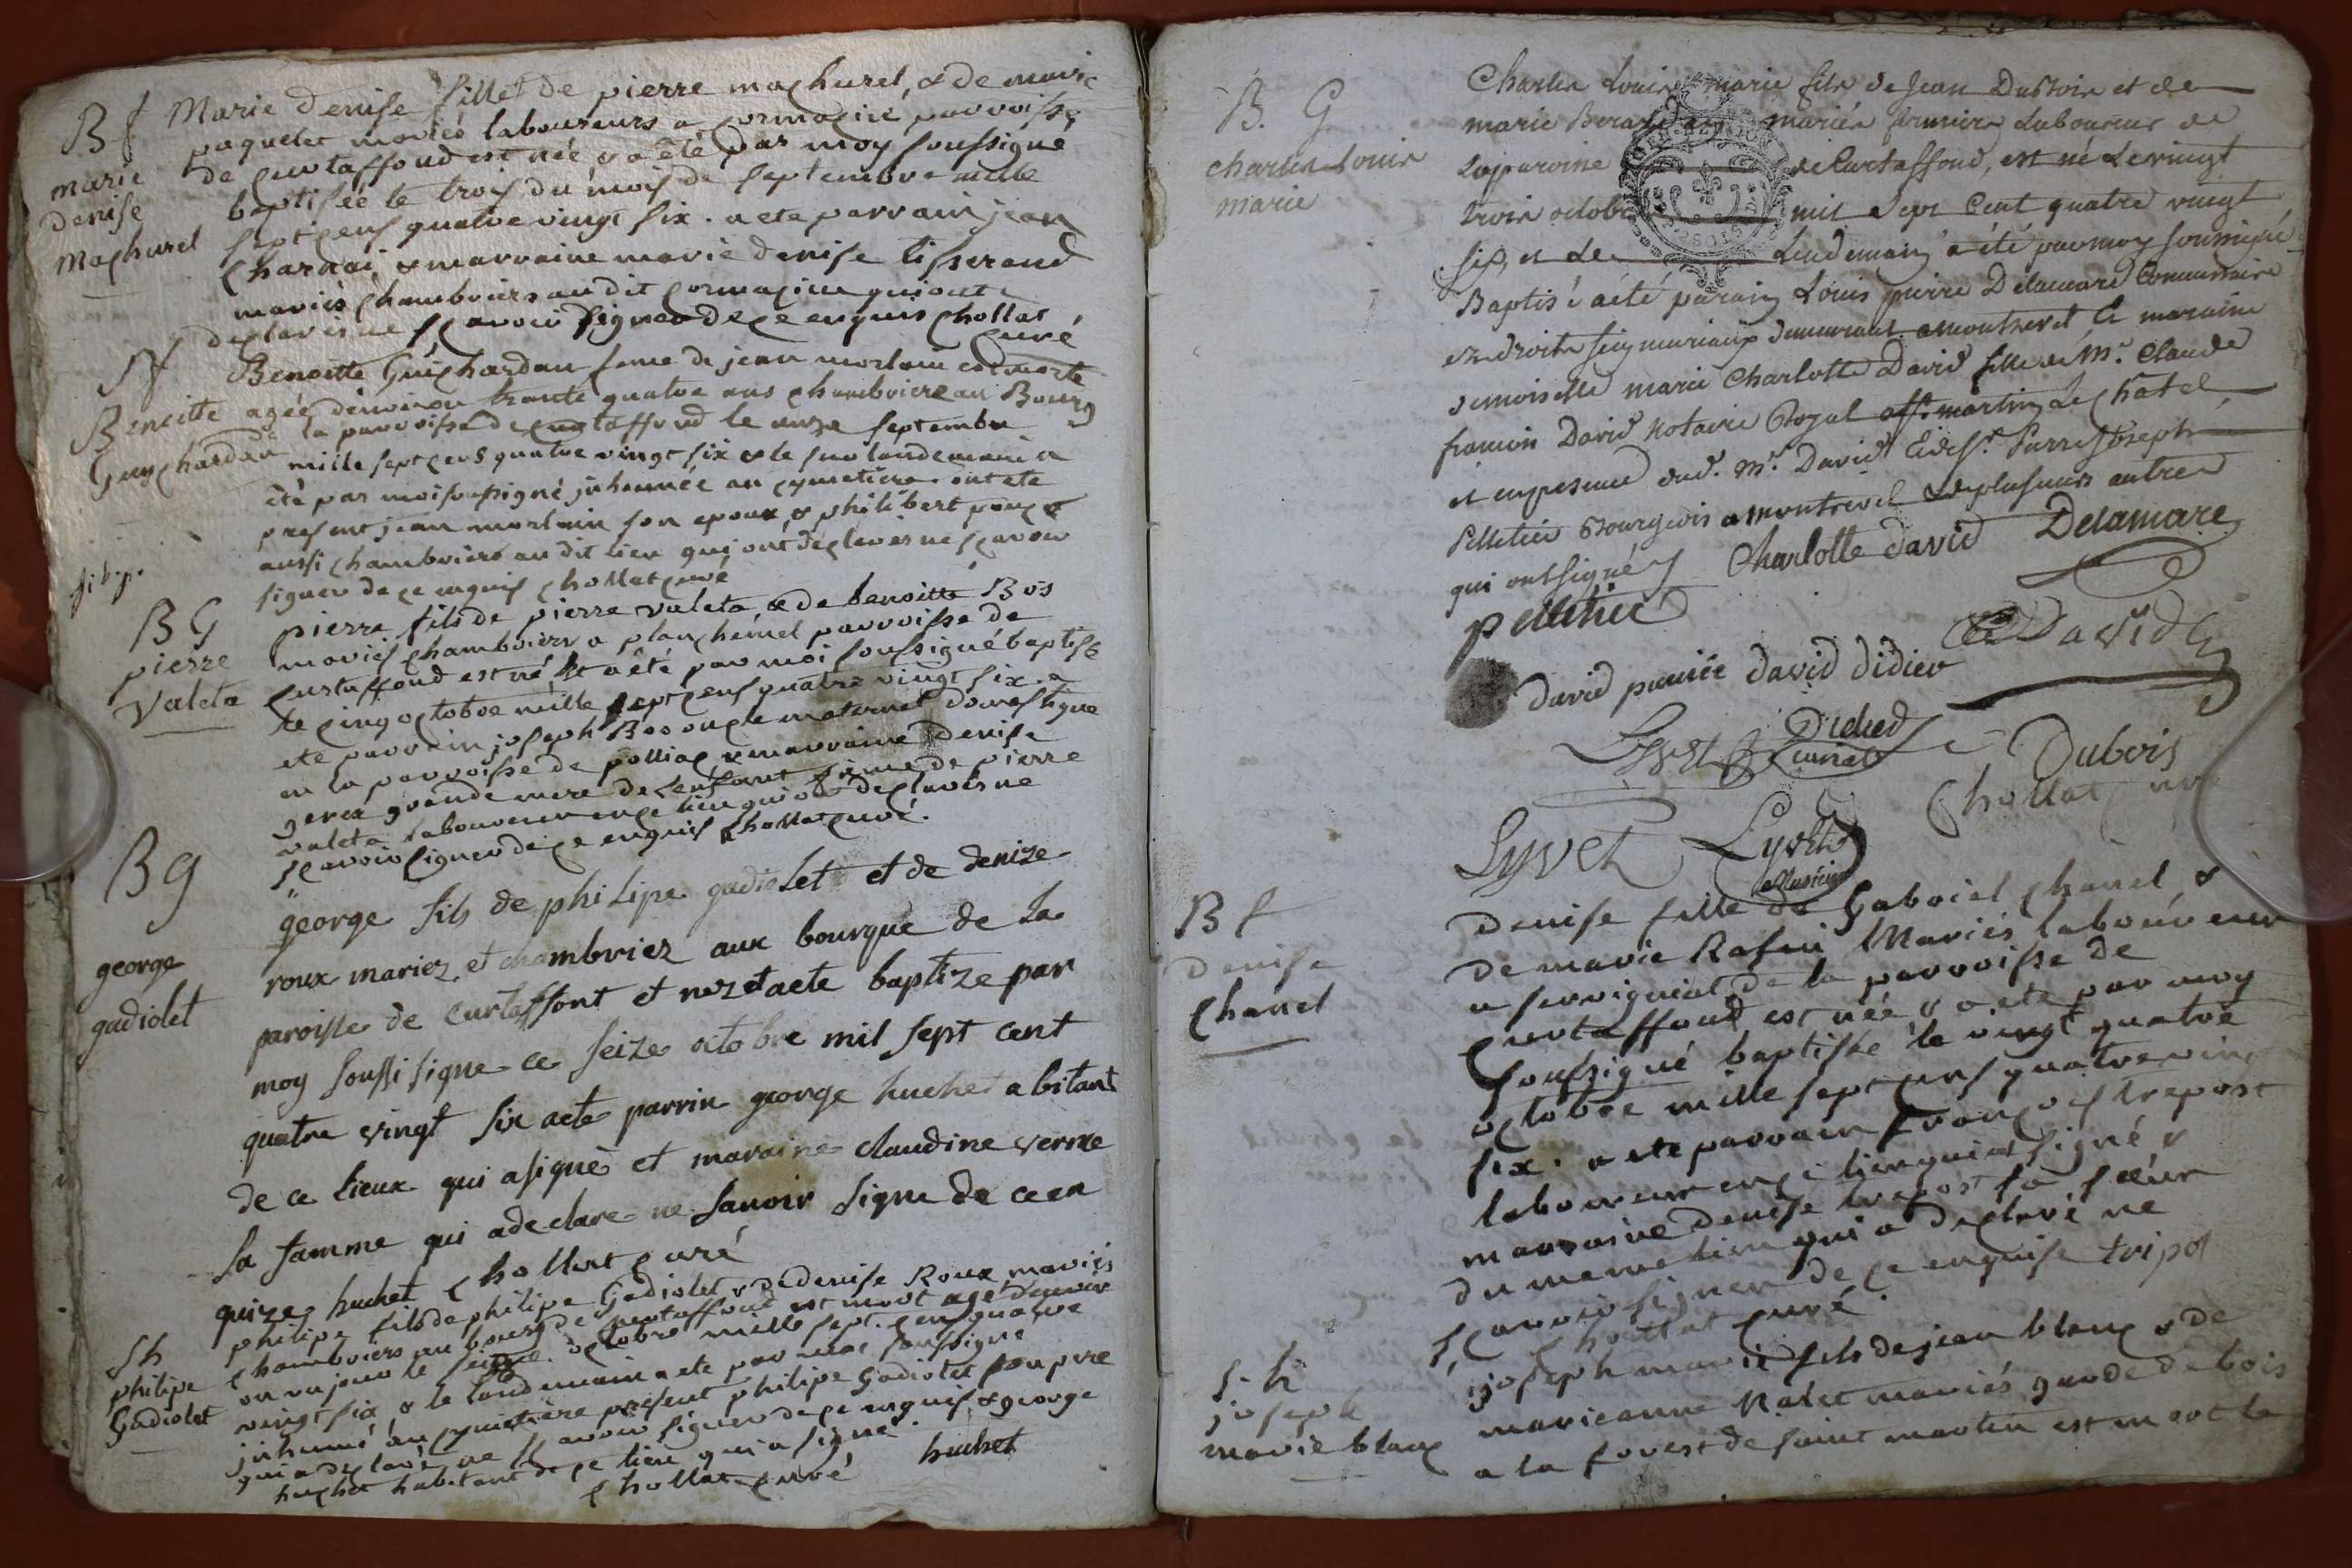 B f
marie
denise
machurel
Marie denise fillet de pierre machurel, & de marie
paquelet mariés laboureurs a cormaciné parroisse
de curtaffond est née & a été par moy soussigné
baptisée le trois du mois de septembre mille
sept cens quatre vingt six. a ete parrain jean
charnai, & marraine marie denise tisserand
mariés chambriers au dit cormacine qui ont
declarés ne scavoir signer de ce enquis chollat
curé
S f
Benoitte
Guichardan
Benoitte Guichardan feme de jean morlain est morte
agée d'environ trante quatre ans chambriere au Bourg
de la parroisse de curtaffond le onze septembre
mille sept cens quatre vingt six & le sur landemain a
été par moi sousigné inhumée au cymetiere. ont ete
present jean morlain son epoux, & philibert
aussi chambriers au dit lieu qui ont declarés ne scavoir
signer de ce enquis chollat curé
B G
pierre
Valeta
pierre fils de pierre valeta, & de benoitte Bos
mariés chambriers a planchemel parroisse de
curtaffond est né et a été par moi soussigné baptisé
le cinq octobre mille sept cens quatre vingt six. a
ete parrain joseph Bos oncle maternel domestique
en la parroisse de polliac & marraine denise
gerex grande mere de l'enfant feme de pierre
valeta laboureur en ce lieu qui ont declarés ne
scavoir signer de ce enquis chollat curé.
B g
george
gadiolet
george fils de philipe gadiolet et de denize
roux mariez et chambriez aux bourgue de la
paroisse de curtaffont et nez et aete baptize par
moy soussisigne ce seize octobre mil sept cent
quatre vingt six aete parrin george huchet abitant
de ce lieux qui asigné et maraine claudine verne
sa famme qui adeclare ne savoir signe de ce en
quize huchet chollat curé
S h
philipe
Gadiolet
philipe fils de philipe Gadiolet & de denise Roux mariés
chambriers au bourg de curtaffoud est mort agé d'environ
un jour le seize octobre mille sept cens quatre
vingt six & le landemain a ete par moi soussigné
inhumé au cymetiere présent philipe Gadiolet son pere
qui a declaré ne scavoir signer de ce enquis & george
huchet habitant de ce lieu qui a signé.
chollat curé huchet
B. G
charles Louis
marie
Charles Louis marie fils de Jean Dubois et de
marie Berard mariés fermiers Laboureur de
La parroisse de Curtaffond, est né Le vingt
trois octobre mil Sept Cent quatre vingt
six, et Le Lendemain a été par moy soussigné
Baptisé a été parain Louis pierre Delamare Commissaire
en droits seigneuriaux demeurant a montrevel & maraine
demoiselle marie Charlotte David fille de Mr. Claude
francois David Notaire Royal a St. martin Le Châtel,
et en presence dud. Mr. David Et de Sr. Pierre Joseph
Pelletier Bourgeois a montrevel & de plusieurs autres
qui ont signé Charlotte david Delamare
pelletier
David
david didier
Dubois
Chollat curé
Lyvet Lyvet
B f
Denise
Chanel
Denise fille de Gabriel chanel &
de marie Rafin Mariés laboureur
a servigniat de la parroisse de
curtaffoud est née & a ete par moy
soussigné baptisée le vingt quatre
octobre mille sept cens quatre vin
six. a ete parrain françois trepost
laboureur en ce lieu qui a signé &
marraine denise trepost sa sœur
du meme lieu qui a declaré ne
scavoir signer de ce enquise tripot
chollat curé.
S. h
joseph
marie blanc
joseph marie fils de jean blanc & de
marieanne Nalet mariés garde de bois
a la forest de saint martin est mort le